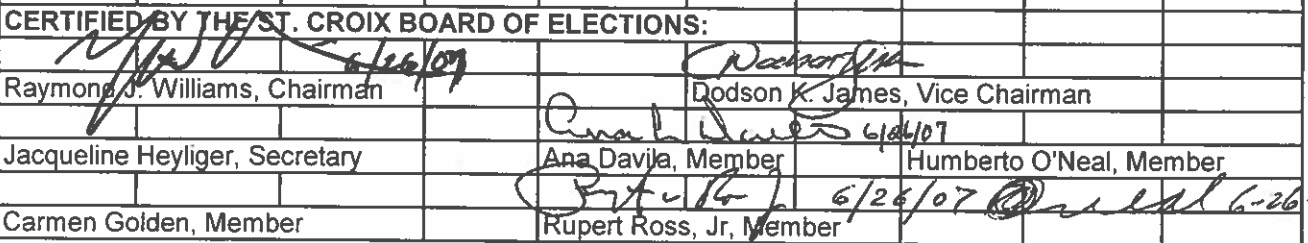 CERTIFIED BY THE ST. CROIX BOARD OF ELECTIONS:
6/26/07
Raymond J. Williams, Chairman Dodson K. James, Vice Chairman
6/26/07
Jacqueline Heyliger, Secretary Ana Davila, Member Humberto O'Neal, Member
6/26/07 O'Neal 6-26
Carmen Golden, Member Rupert Ross, Jr, Member